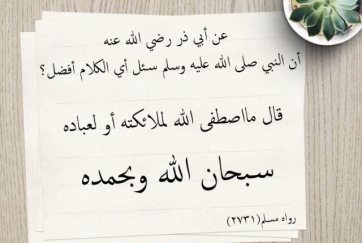 عن أبي ذر رضي الله عنه
أن النبي صلى الله عليه وسلم سئل أي الكلام أفضل؟
قال مااصطفى الله لملائكته أو لعباده
سبحان الله وبحمده
رواه مسلم(٢٧٣١)